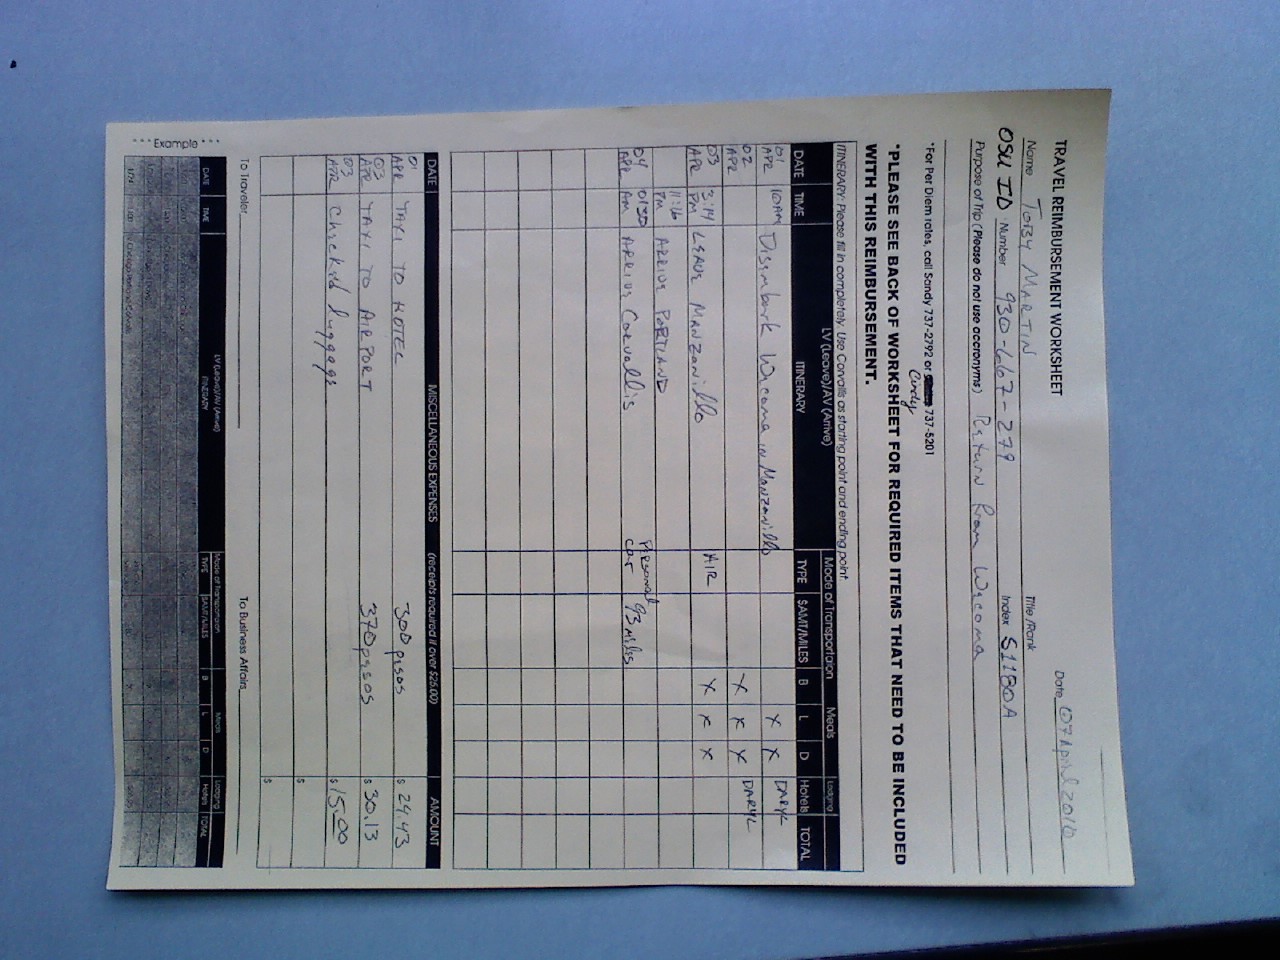 TRAVEL REIMBURSEMENT WORKSHEET
Date 07 April 2010
Name TOBY MARTIN Title/Rank
OSU ID Number 930-667-279 Index S1180A
Purpose of Trip (Please do not use accronyms) Return from Wecoma
*For Per Diem rates, call Sandy 737-2792 or Cindy 737-5201
*PLEASE SEE BACK OF WORKSHEET FOR REQUIRED ITEMS THAT NEED TO BE INCLUDED
WITH THIS REIMBURSEMENT.
ITINERARY: Please fill in completely. Use Corvallis as starting point and ending point.
Mode of Transportation Meals Lodging
DATE TIME LV (Leave)/AV (Arrive) ITINERARY TYPE $AMT/MILES B L D Hotels TOTAL
01 APR 10AM Disembark Wecoma in Manzanillo X X DARYL
02 APR X X X DARYL
03 APR 3:14 PM LEAVE MANZANillo AIR X X X
11:16 PM ARRIVE PORTLAND
04 APR 0130 AM ARRIVE Corvallis Personal car 93 miles
DATE MISCELLANEOUS EXPENSES (receipts required if over $25.00) AMOUNT
01 APR TAXI TO HOTEL 300 pesos $ 24.43
03 APR TAXI TO AIRPORT 370 pesos $ 30.13
03 APR Checked luggage $ 15.00
$
$
To Traveler To Business Affairs
*** Example ***
DATE TIME LV (Leave)/AV (Arrive) ITINERARY Mode of Transportation TYPE $AMT/MILES Meals B L D Lodging Hotels TOTAL